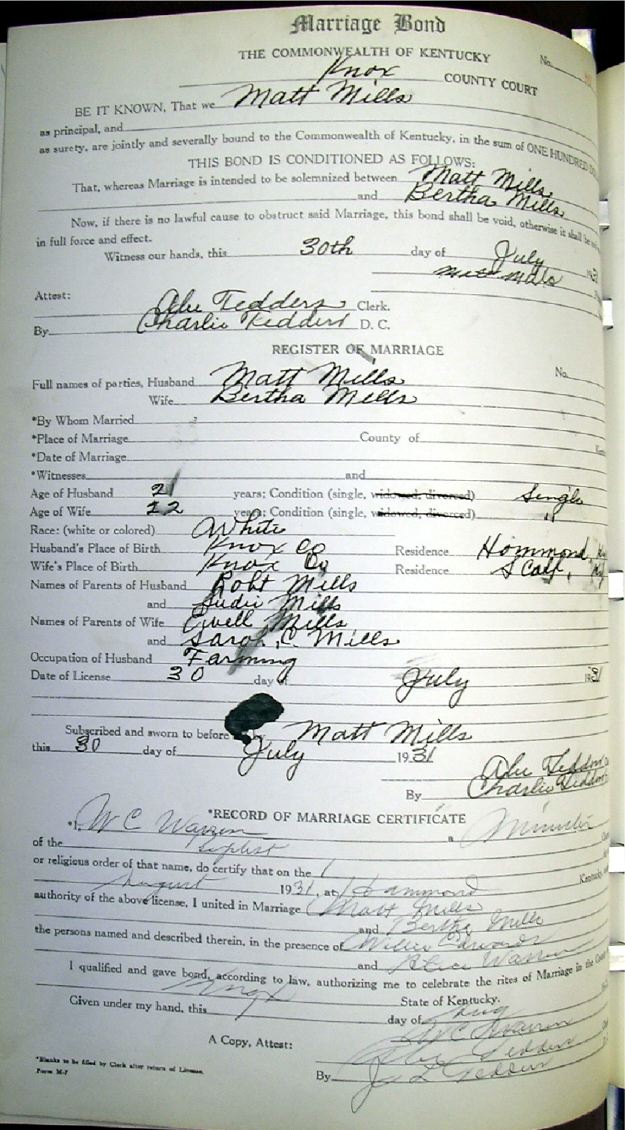 Marriage Bond
THE COMMONWEALTH OF KENTUCKY
No.
Knox COUNTY COURT
BE IT KNOWN, That we Matt Mills
as principal, and
as surety, are jointly and severally bound to the Commonwealth of Kentucky, in the sum of ONE HUNDRED
THIS BOND IS CONDITIONED AS FOLLOWS:
That, whereas Marriage is intended to be solemnized between Matt Mills
and Bertha Mills
Now, if there is no lawful cause to obstruct said Marriage, this bond shall be void, otherwise it shall be
in full force and effect.
Witness our hands, this 30th day of July 1931
Matt Mills
Attest:
Abe Tedders Clerk.
By Charlie Tedders D. C.
REGISTER OF MARRIAGE
Full names of parties, Husband Matt Mills No.
Wife Bertha Mills
*By Whom Married
*Place of Marriage County of
*Date of Marriage
*Witnesses and
Age of Husband 21 years; Condition (single, widowed, divorced) Single
Age of Wife 22 years; Condition (single, widowed, divorced) "
Race: (white or colored) White
Husband's Place of Birth Knox Co Residence Hommond, Ky
Wife's Place of Birth Knox Co Residence Scalf, Ky
Names of Parents of Husband Robt Mills
and Sudie Mills
Names of Parents of Wife Ewell Mills
and Sarah C. Mills
Occupation of Husband Farming
Date of License 30 day of July 1931
Subscribed and sworn to before Matt Mills
this 30 day of July 1931
Abe Tedders
By Charlie Tedders
*RECORD OF MARRIAGE CERTIFICATE
*I, W C Warren a Minister
of the Baptist
or religious order of that name, do certify that on the 1
August 1931, at Hammond Kentucky
authority of the above license, I united in Marriage Matt Mills
and Bertha Mills
the persons named and described therein, in the presence of Willie Edwards
and Alice Warren
I qualified and gave bond, according to law, authorizing me to celebrate the rites of Marriage in the
State of Kentucky.
Given under my hand, this day of Aug
W C Warren
A Copy, Attest: Abe Tedders
By J L Tedders
*Blanks to be filled by Clerk after return of License.
Form M-7